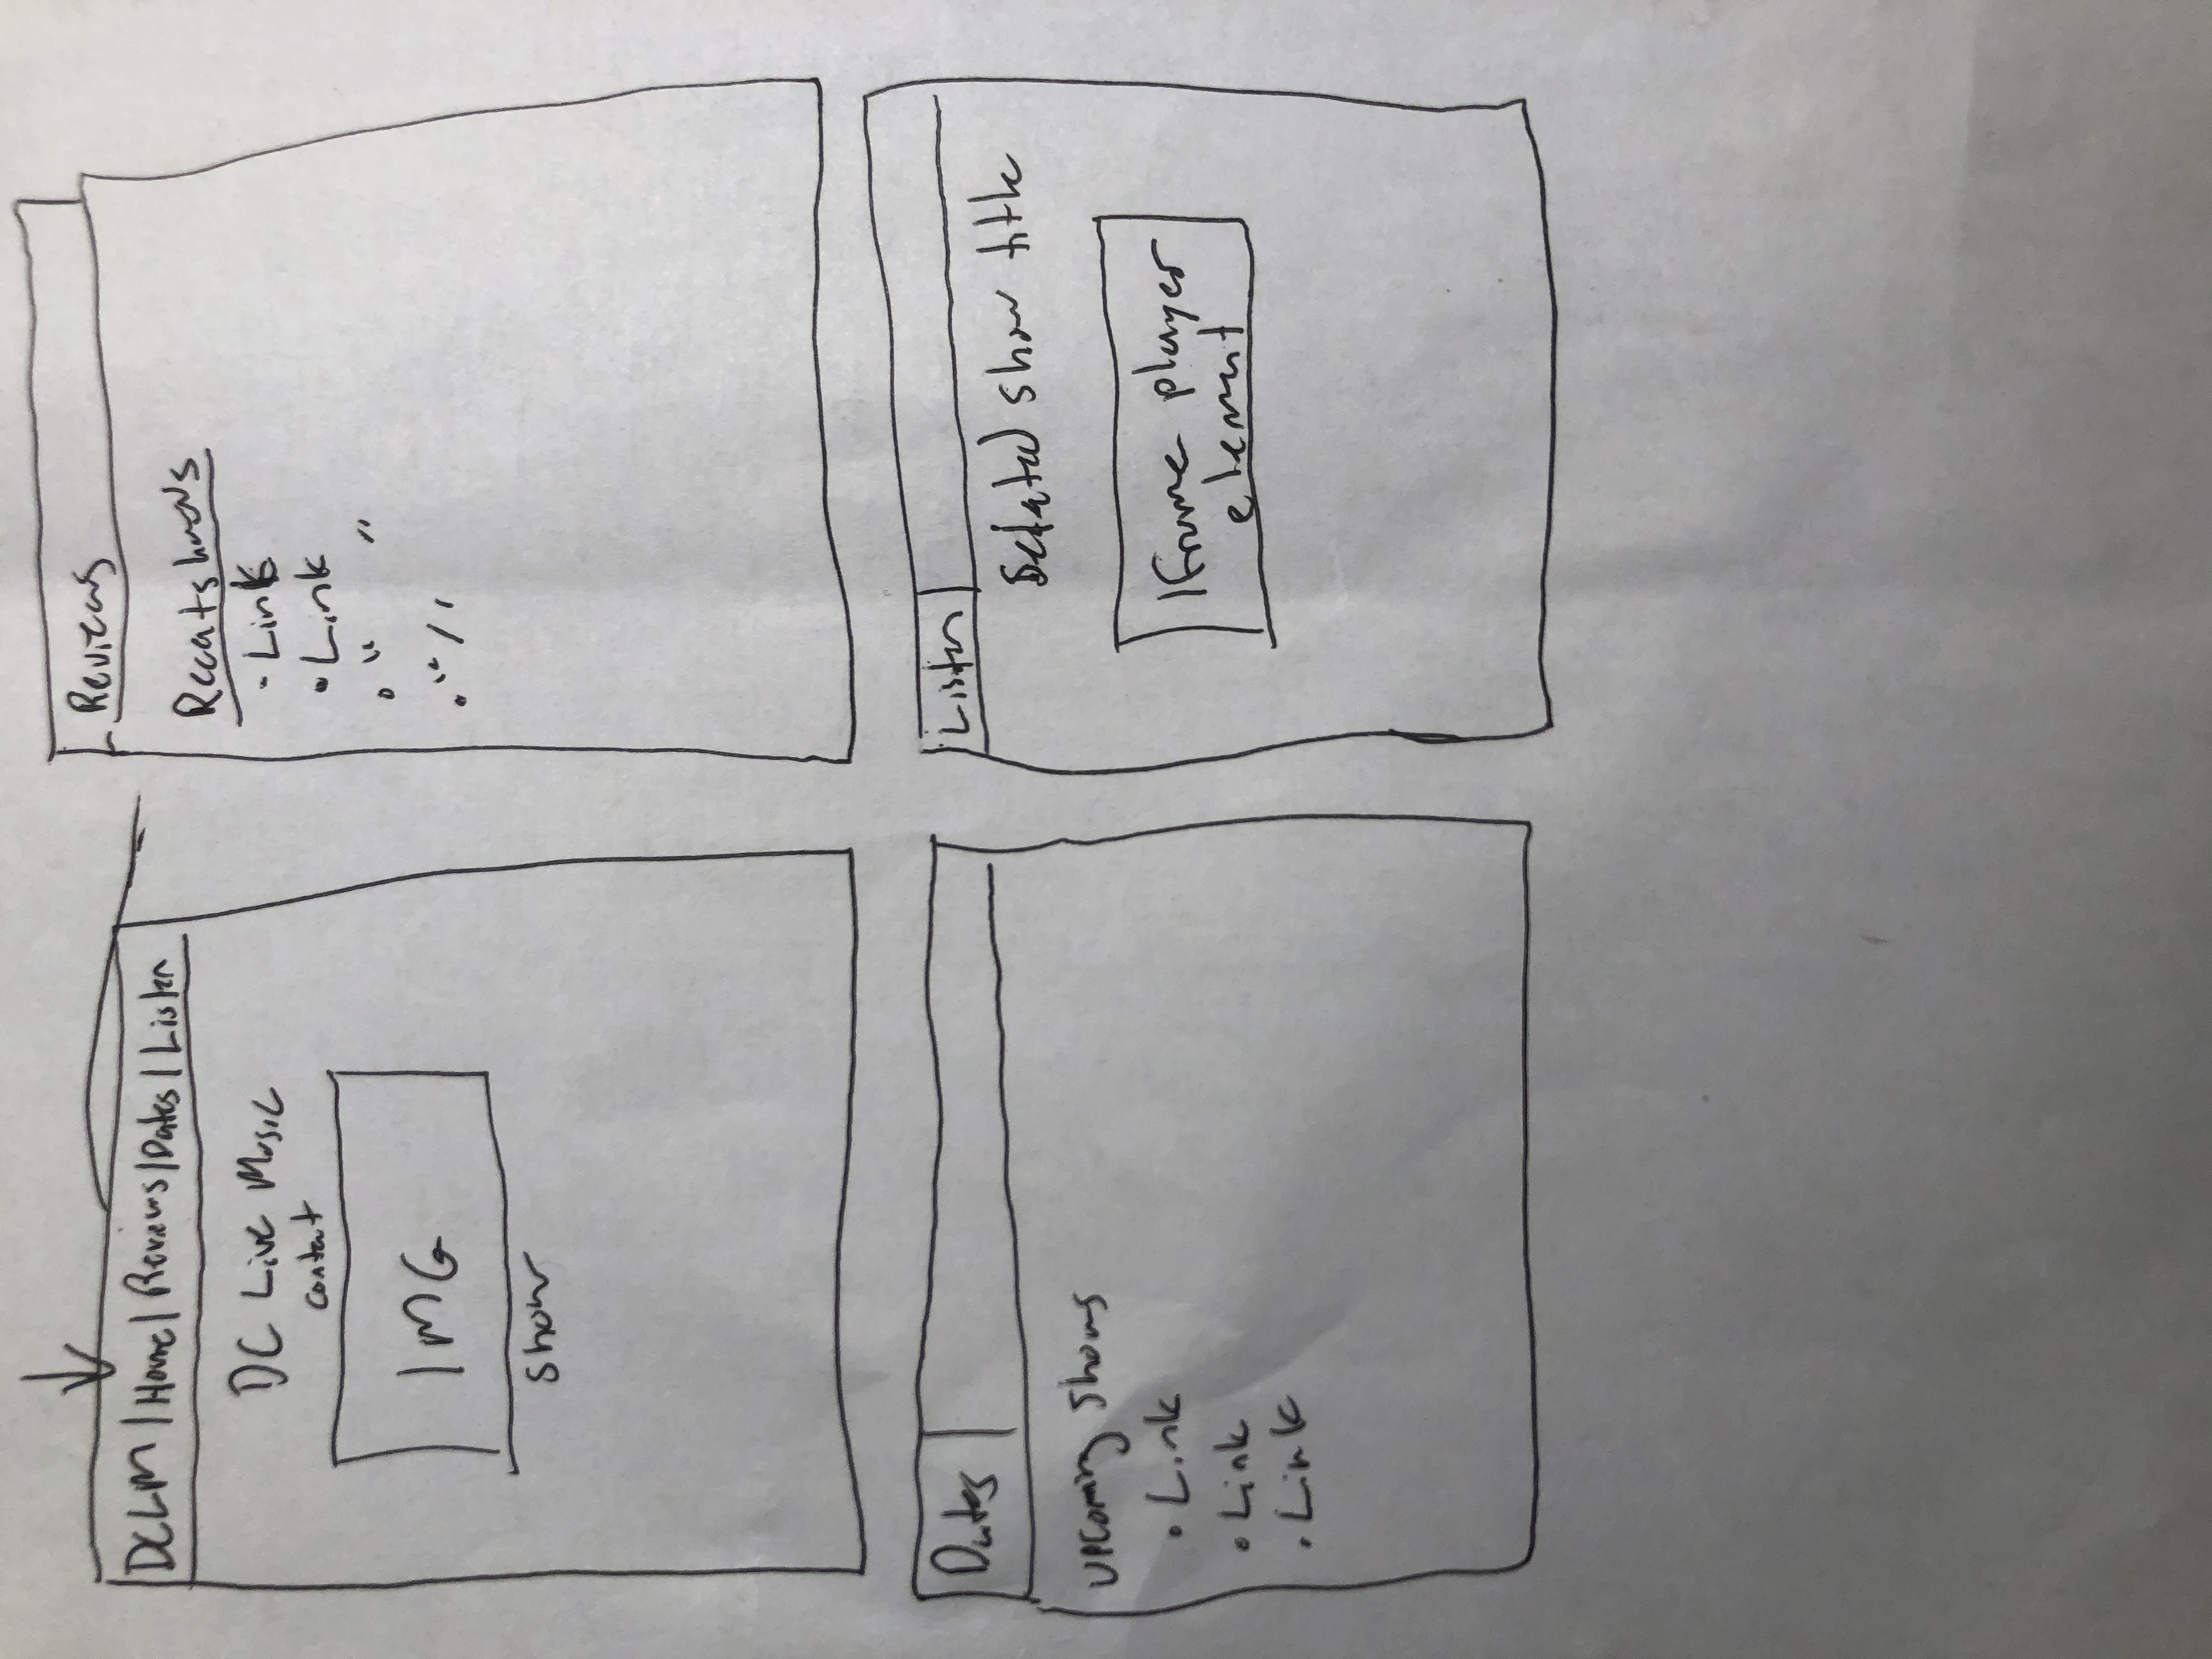 DCLM | Home | Reviews | Dates | Listen
DC Live Music
content
IMG
show
Reviews
Recent shows
• Link
• Link
• " "
• " "
Dates
Upcoming shows
• Link
• Link
• Link
Listen
Selected show title
IFrame player
element